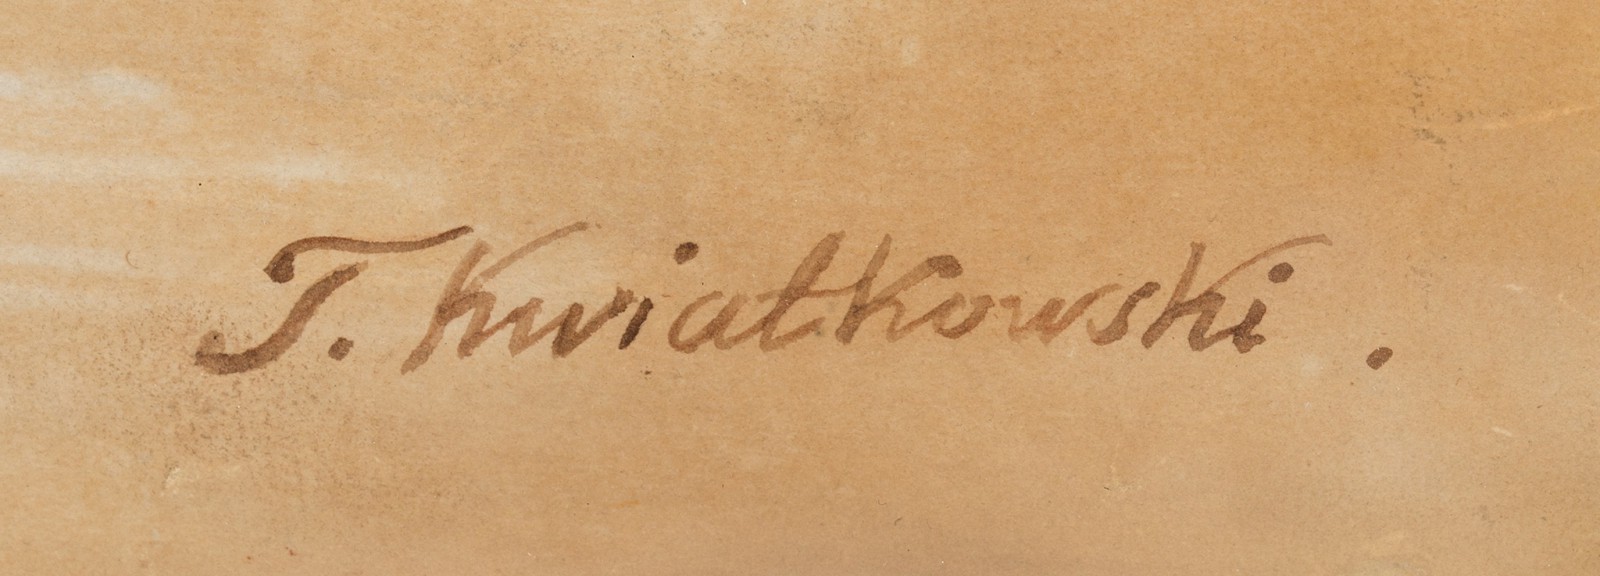 T. Kwiatkowski .